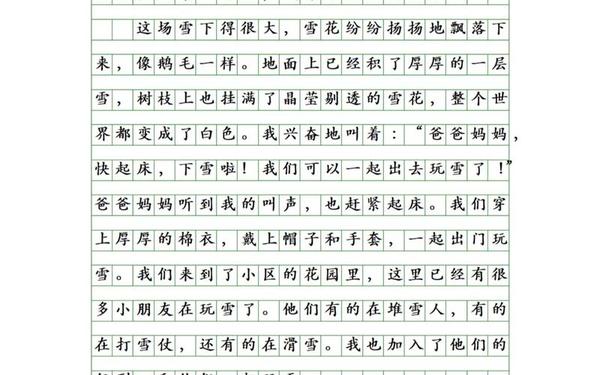 这场雪下得很大，雪花纷纷扬扬地飘落下
来，像鹅毛一样。地面上已经积了厚厚的一层
雪，树枝上也挂满了晶莹剔透的雪花，整个世
界都变成了白色。我兴奋地叫着：“爸爸妈妈，
快起床，下雪啦！我们可以一起出去玩雪了！”
爸爸妈妈听到我的叫声，也赶紧起床。我们穿
上厚厚的棉衣，戴上帽子和手套，一起出门玩
雪。我们来到了小区的花园里，这里已经有很
多小朋友在玩雪了。他们有的在堆雪人，有的
在打雪仗，还有的在滑雪。我也加入了他们的